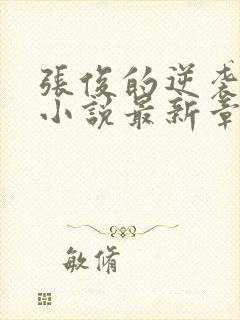 張俊的逆袭
小說最新章
敏脩